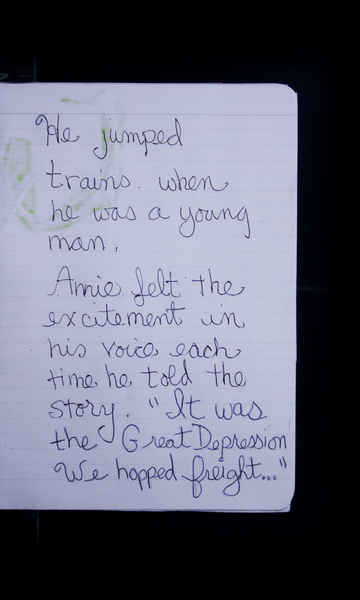 He jumped
trains. when
he was a young
man.
Amie felt the
excitement in
his voice each
time he told the
story. "It was
the Great Depression
We hopped freight..."